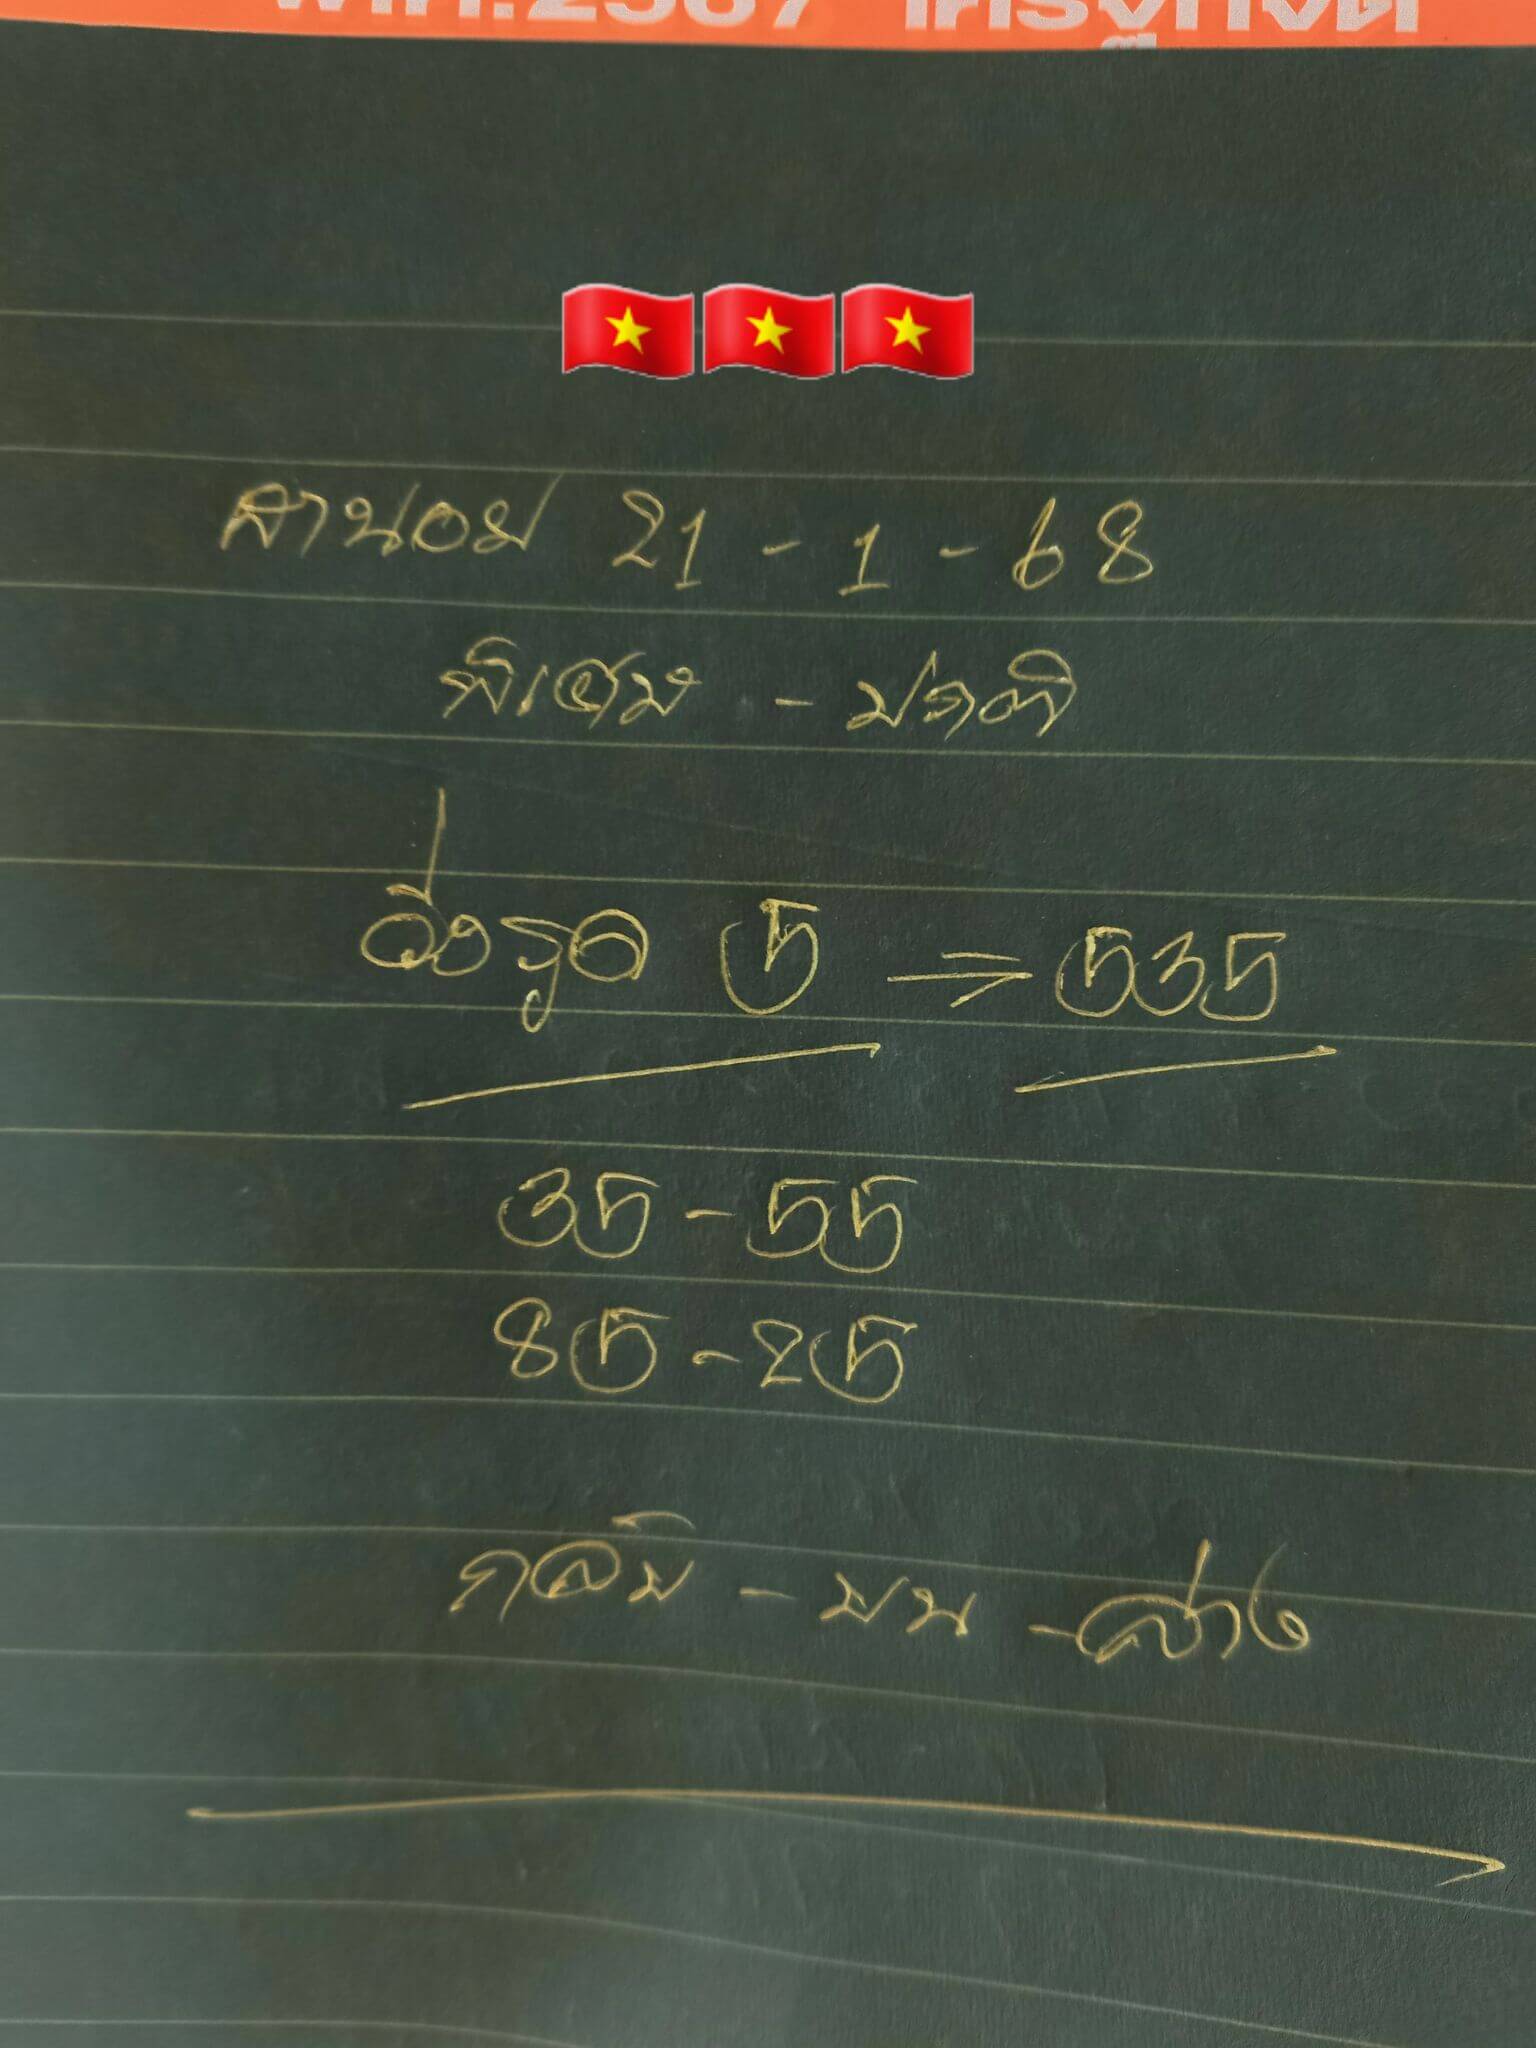 พ.ศ.2567
ฮานอย 21-1-68
พิเศษ - ปกติ
วิ่งรูด 5 => 535
35-55
85-25
กลับ - บน - ล่าง